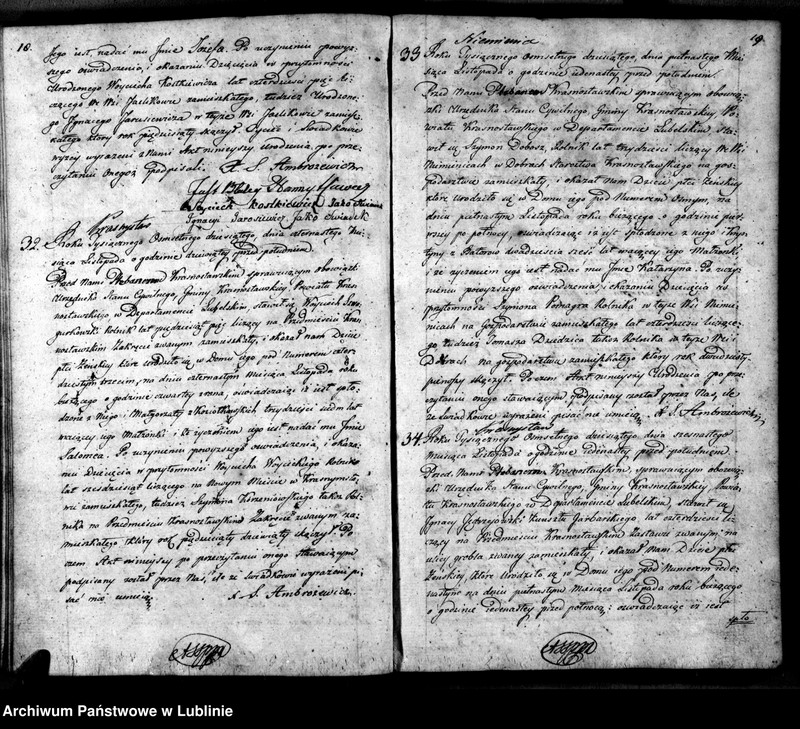 18.
Jego iest nadać mu Jmie Józefa. Po uczynieniu powyż-
szego oświadczenia, i okazaniu Dziecięcia w przytomności
Urodzonego Woyciecha Kostkiewicza lat czterdzieści pięć li-
czącego w Wsi Jaślikowie zamieszkałego, tudzież Urodzone-
go Ignacego Jarosiewicza w teyże Wsi Jaślikowie zamiesz-
kałego który rok pięćdziesiąty skączył. Oyciec i Swiadkowie
wyżey wyrażeni z Nami Akt ninieyszy Urodzenia, po prze-
czytaniu Onegoż podpisali. X S. Ambrożewicz
Woyciech Kostkiewicz Jako Swiadek
Ignacy Jarosiewicz Jako Swiadek
Krasnystaw
32. Roku Tysiącznego Osmsetnego dziesiątego, dnia czternastego Mie-
siąca Listopada o godzinie dziewiątey przed południem.
Przed Nami Plebanem Krasnostawskim sprawuiącym obowiązki
Urzędnika Stanu Cywilnego, Gminy Krasnostawskiey, Powiatu Kras-
nostawskiego w Departamencie Lubelskim, stawił się Woyciech
Rolnik lat pięćdziesiąt pięć liczący na Przedmieściu Kras-
nostawskim Zakręcie zwanym zamieszkały, i okazał nam Dziecie
płci Żeńskiey które urodziło się w Domu iego pod Numerem czter-
dziestym trzecim, na dniu czternastym Miesiąca Listopada roku
bieżącego o godzinie czwartey z rana, oświadczaiąc iż iest spło-
dzone z Niego i Małgorzaty z trzydzieści siedm lat
maiącey iego Małżonki i że życzeniem iego iest nadać mu Jmie
Salomea. Po uczynieniu powyższego oświadczenia, i okaza-
niu Dziecięcia w przytomności Woyciecha Woycickiego Rolnika
lat sześćdziesiąt liczącego na Nowym Mieście w Krasnymsta-
wie zamieszkałego, tudzież Szymona Korzeniowskiego także Rol-
nika na Przedmieściu Krasnostawskim Zakręcie zwanym za-
mieszkałego i który rok pięćdziesiąty dziewiąty skączył. Po-
czem Akt ninieyszy po przeczytaniu onego stawaiącym
podpisany został przez Nas, ile że Swiadkowie wyrażeni pi-
sać nie umieią.
X. S. Ambrożewicz.
19.
Niemienice
33 Roku Tysiącznego Osmsetnego dziesiątego, dnia piętnastego Mie-
siąca Listopada o godzinie iedenastey przed południem.
Przed Nami Plebanem Krasnostawskim sprawuiącym obowią-
zki Urzędnika Stanu Cywilnego, Gminy Krasnostawskiey Po-
wiatu Krasnostawskiego w Departamencie Lubelskim, Sta-
wił się Szymon Dobosz, Rolnik lat trzydzieści liczący w Wsi
Niemienicach w Dobrach Starostwa Krasnostawskiego na gos-
podarstwie zamieszkały i okazał nam Dziecie płci żeńskiey
które urodziło się w Domu iego pod Numerem Osmym, na
dniu piętnastym Listopada roku bieżącego o godzinie pier-
wszey po północy, oświadczaiąc iż iest spłodzone z niego i Krys-
tyny z dwadzieścia sześć lat maiącey iego Małżonki
i że życzeniem iego iest nadać mu Jmie Katarzyna. Po uczy-
nieniu powyższego oświadczenia i okazaniu Dziecięcia w
przytomności Szymona Rolnika w teyże Wsi Niemie-
nicach na Gospodarstwie zamieszkałego lat czterdzieści liczące-
go tudzież Tomasza Dziadzica także Rolnika w teyże Wsi i
Dobrach na gospodarstwie zamieszkałego który rok dwudziesty
pierwszy skączył. Poczem Akt ninieyszy Urodzenia po prze-
czytaniu onego stawaiącym podpisany został przez Nas, ile
że swiadkowie wyrażeni pisać nie umieią. X. S. Ambrożewicz
Krasnystaw
34. Roku Tysiącznego Osmsetnego dziesiątego dnia szesnastego
miesiąca Listopada o godzinie iedenastey przed południem.
Przed Nami Plebanem Krasnostawskim, sprawuiącym obowią-
zki Urzędnika Stanu Cywilnego, Gminy Krasnostawskiey Powia-
tu Krasnostawskiego w Departamencie Lubelskim, stawił się
Ignacy Kunsztu Garbarskiego lat czterdzieści li-
czący na Przedmieściu Krasnostawskim Zastawie zwanym na
ulicy grobla zwaney zamieszkały, i okazał nam Dziecie płci
Żeńskiey które Urodziło się w Domu iego pod Numerem iede-
nastym na dniu piętnastym Miesiąca Listopada roku bieżącego
o godzinie iedenastey przed północą: oświadczaiąc iż iest
spło
Archiwum Państwowe w Lublinie